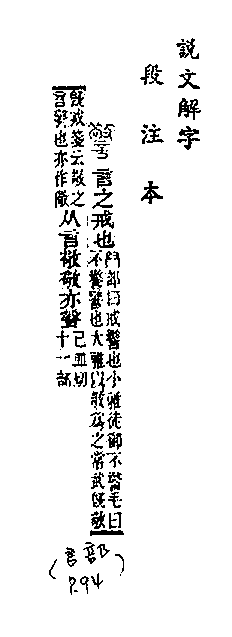 説文解字
段注本
警 言之戒也 廾部曰戒警也小雅徒御不警毛曰
不警警也大雅以敬爲之常武旣敬
旣戒箋云敬之
言警也亦作儆
从言敬敬亦聲 己皿切
十一部
(言部
P.94)